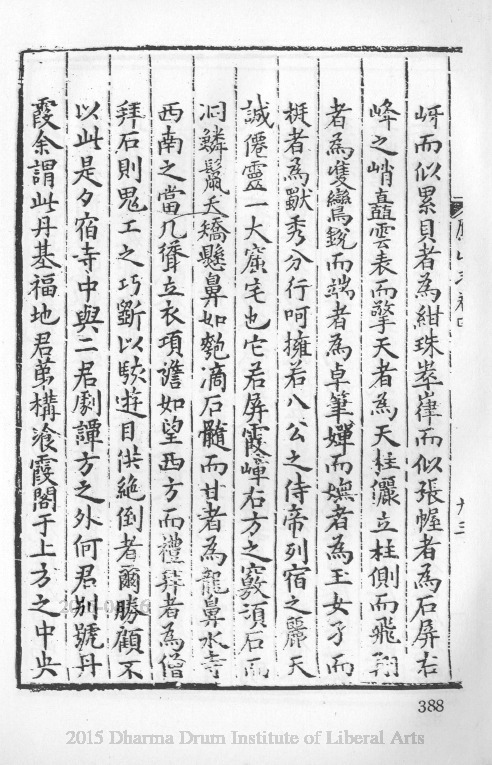 岈而似累貝者為紺珠崒嵂而似張幄者為石屏右
峰之峭矗雲表而擎天者為天柱儷立柱側而飛翔
者為雙鸞銳而端者為卓筆嬋而嫵者為玉女孑而
挺者為獸秀分行呵擁若八公之侍帝列宿之麗天
誠僊靈一大窟宅也它若屏霞嶂右方之竅湏石而
洞鱗鬣天矯懸鼻如匏滴石髓而甘者為龍鼻水寺
西南之當几徬立衣項譫如望西方而禮拜者為僧
拜石則鬼工之巧斲以駭遊目供絶倒者爾勝顧不
以此是夕宿寺中與二君劇譚方之外何君别號丹
霞余謂此丹基福地君苐構飡霞閣于上方之中央
388
2015 Dharma Drum Institute of Liberal Arts